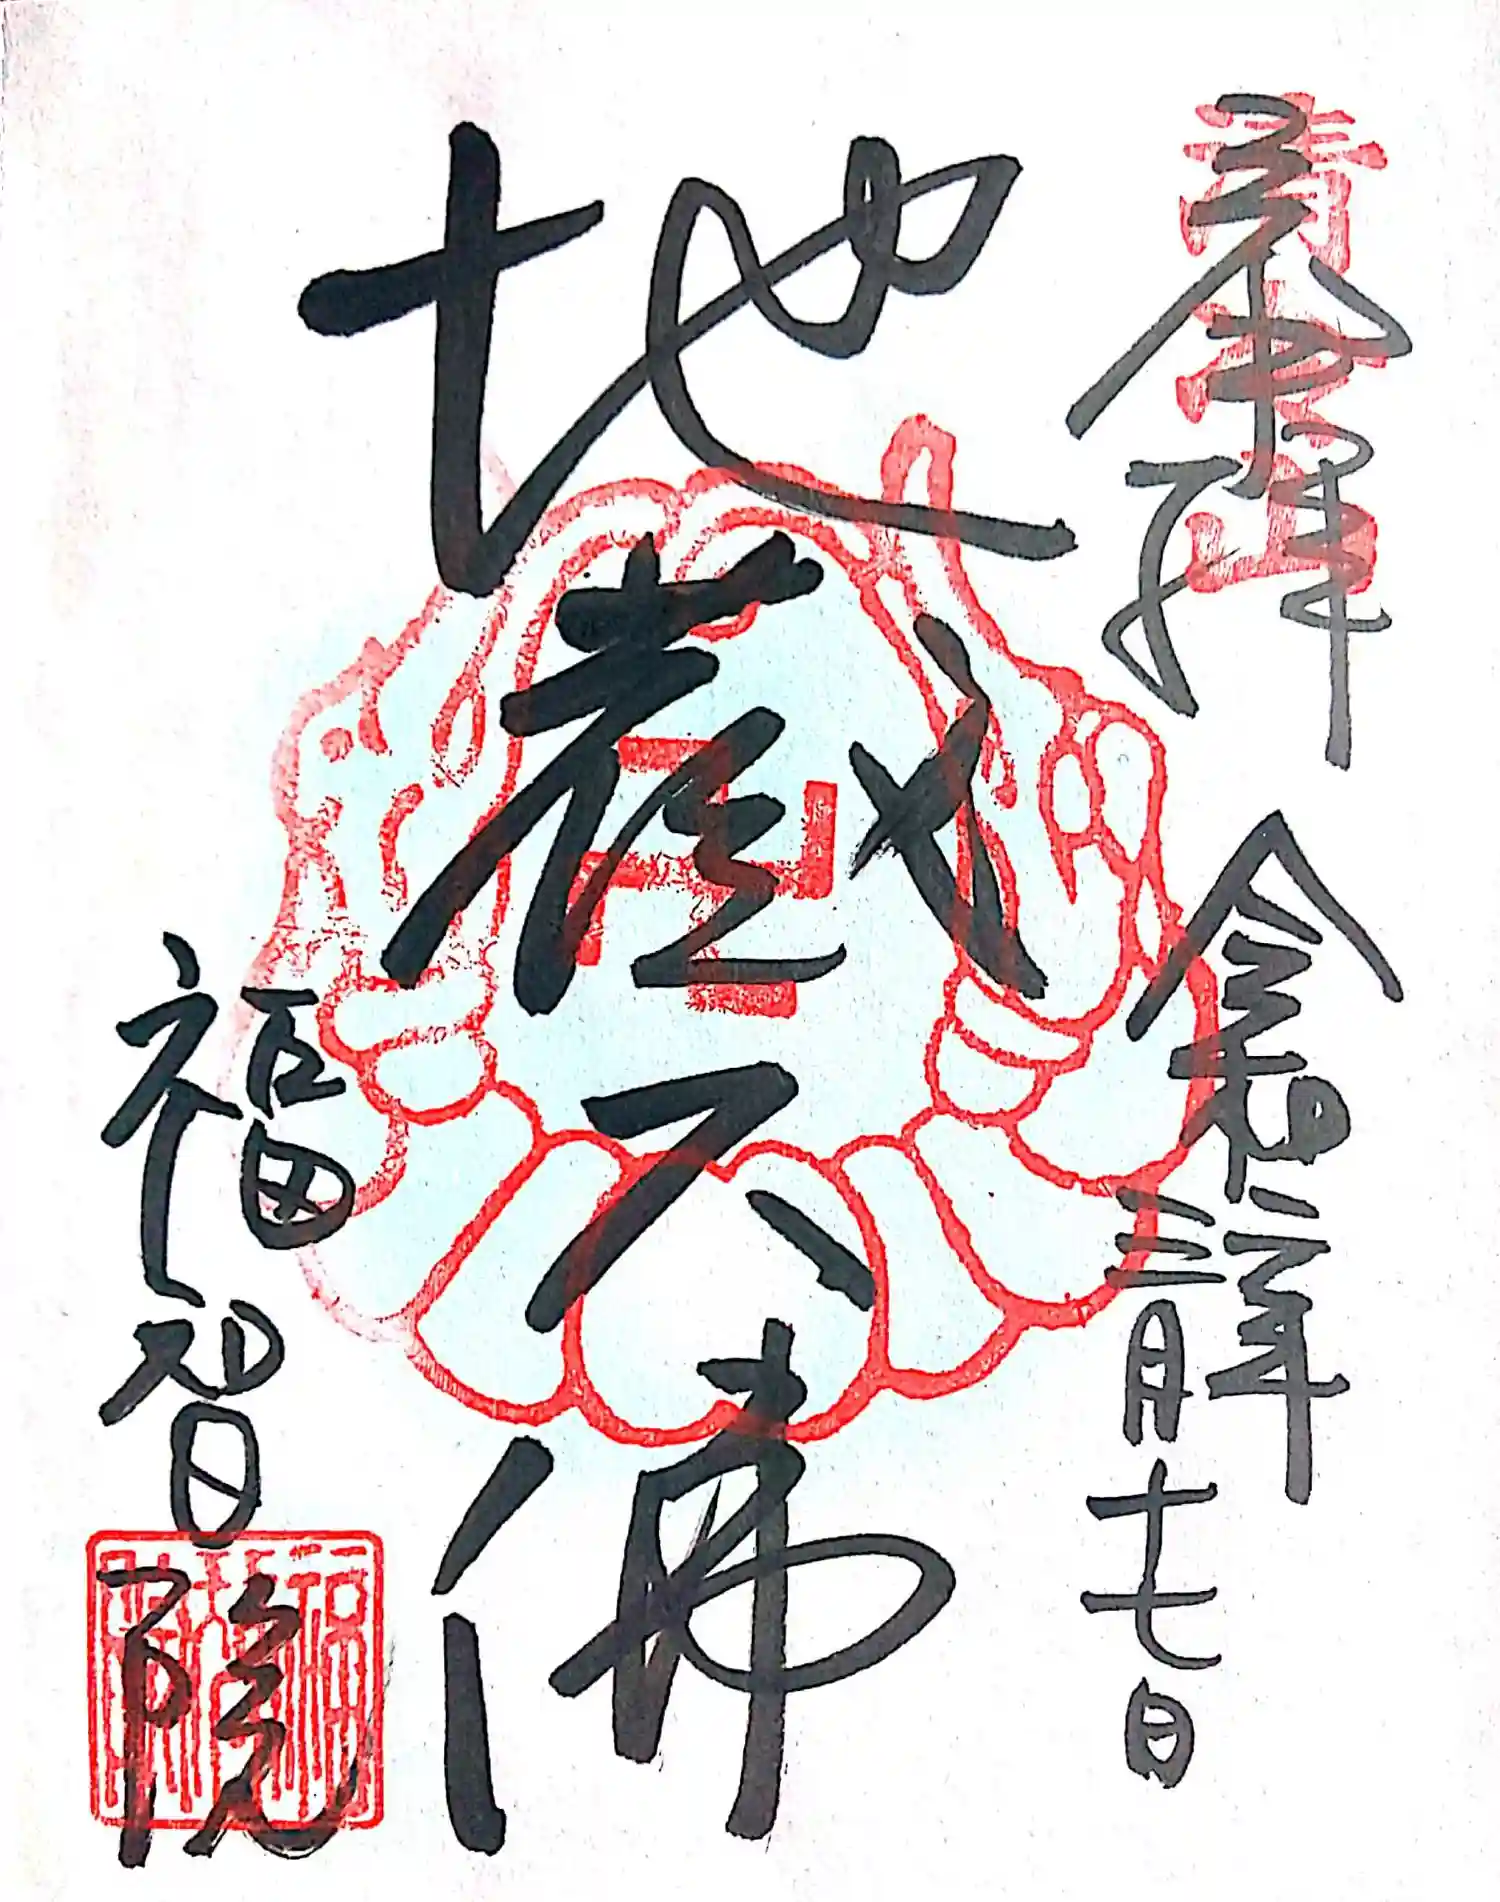 奉拝
清冷山
令和二年
三月十七日
地蔵大佛
福智院